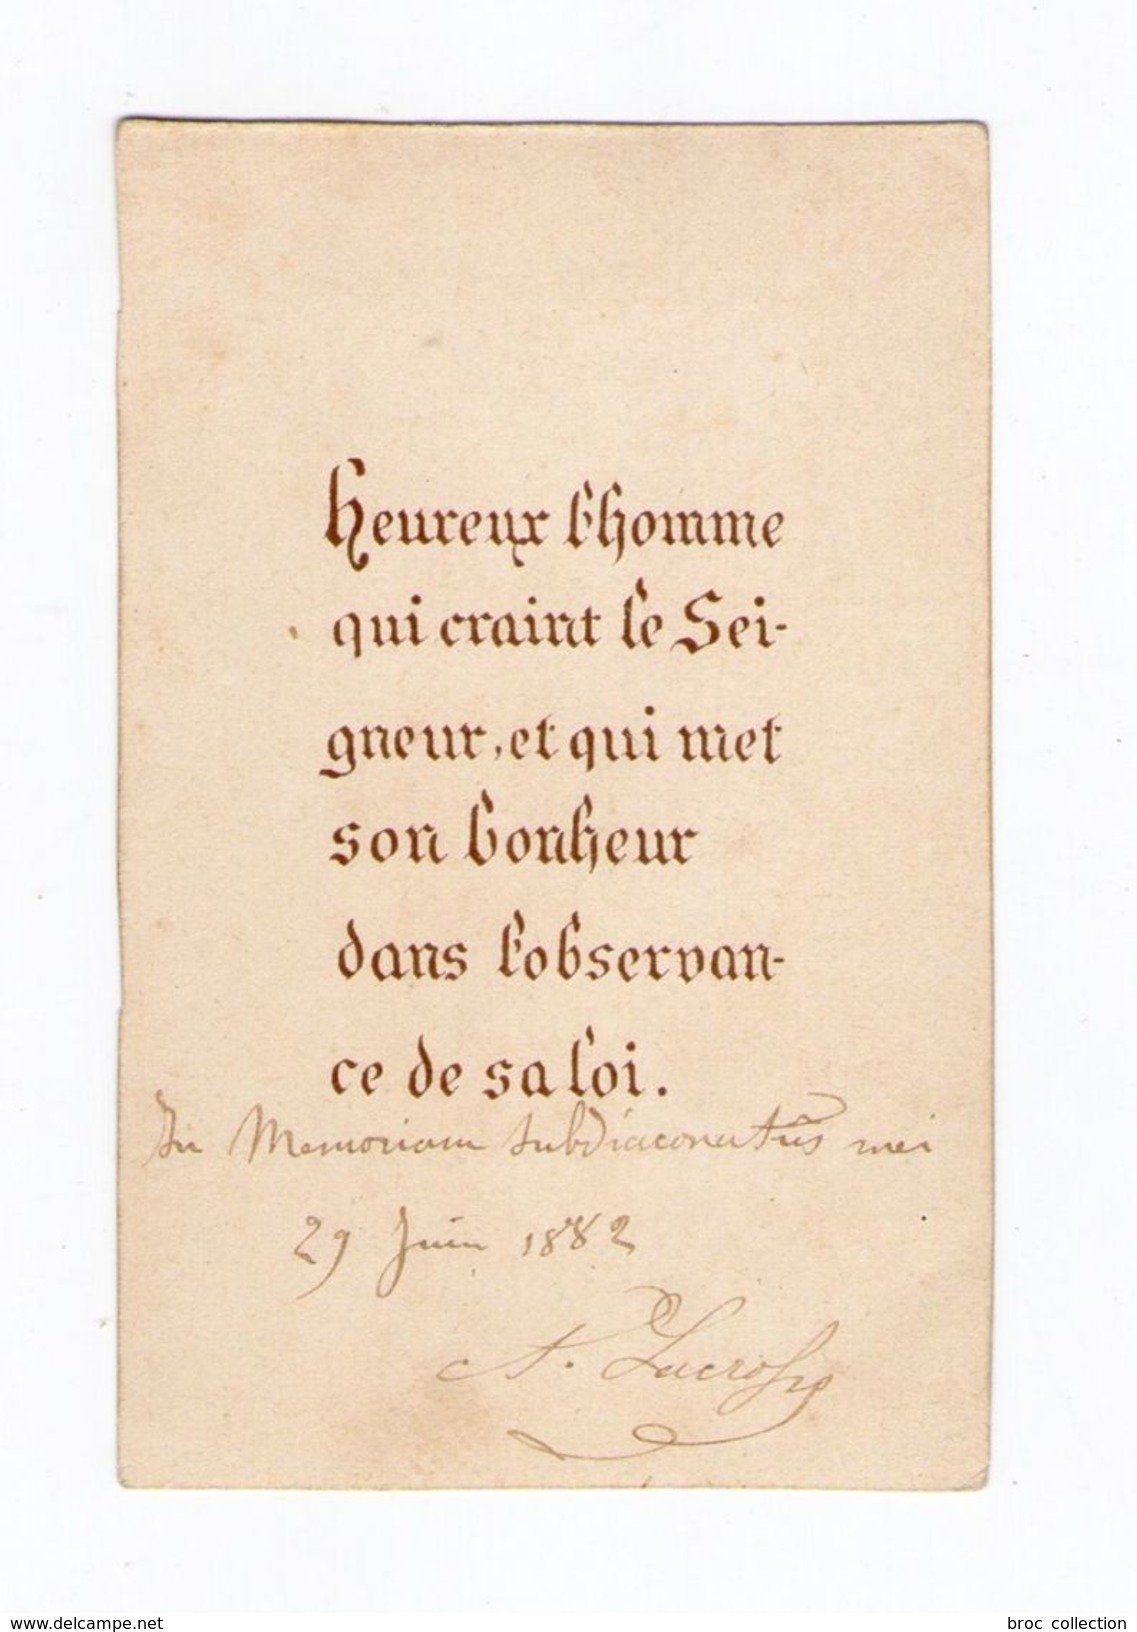 Heureux l'homme
qui craint le Sei-
gneur, et qui met
son bonheur
dans l'observan-
ce de sa loi.
In Memoriam subdiaconatûs mei
29 Juin 1882
A. Lacrosse
www.delcampe.net
broc collection